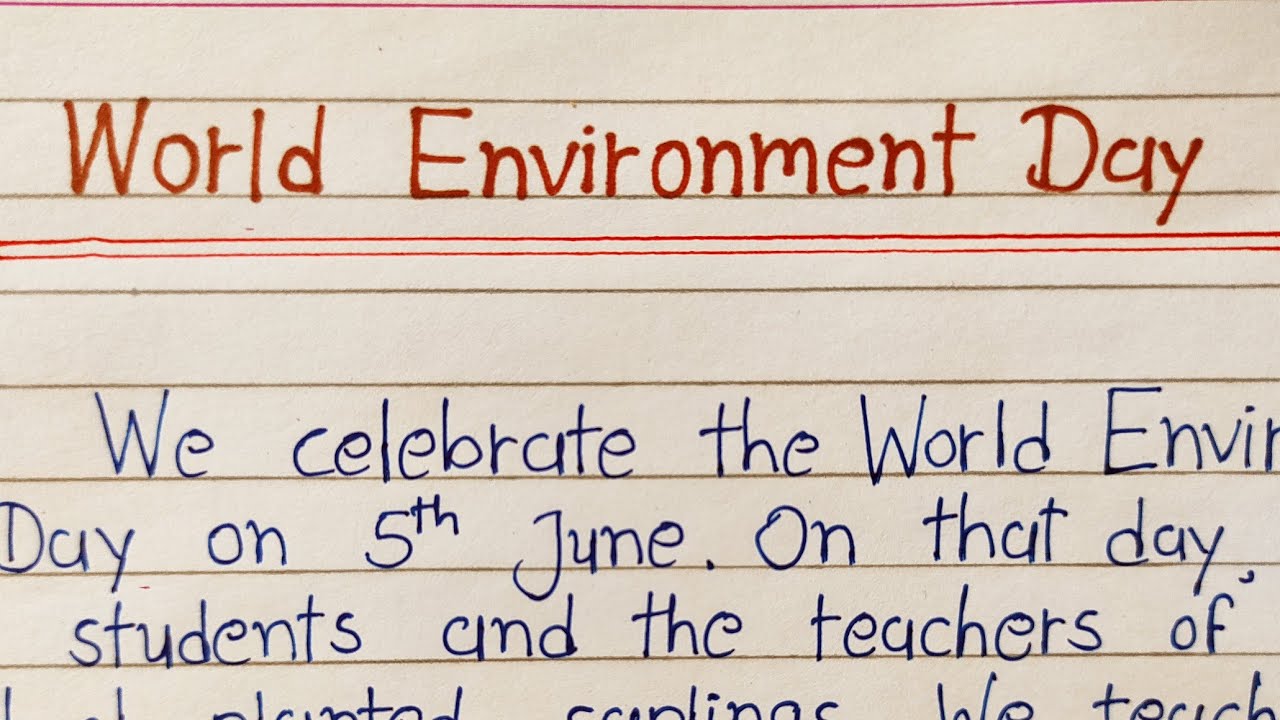 World Environment Day
We celebrate the World Envir
Day on 5th June. On that day,
students and the teachers of
planted saplings. We teach